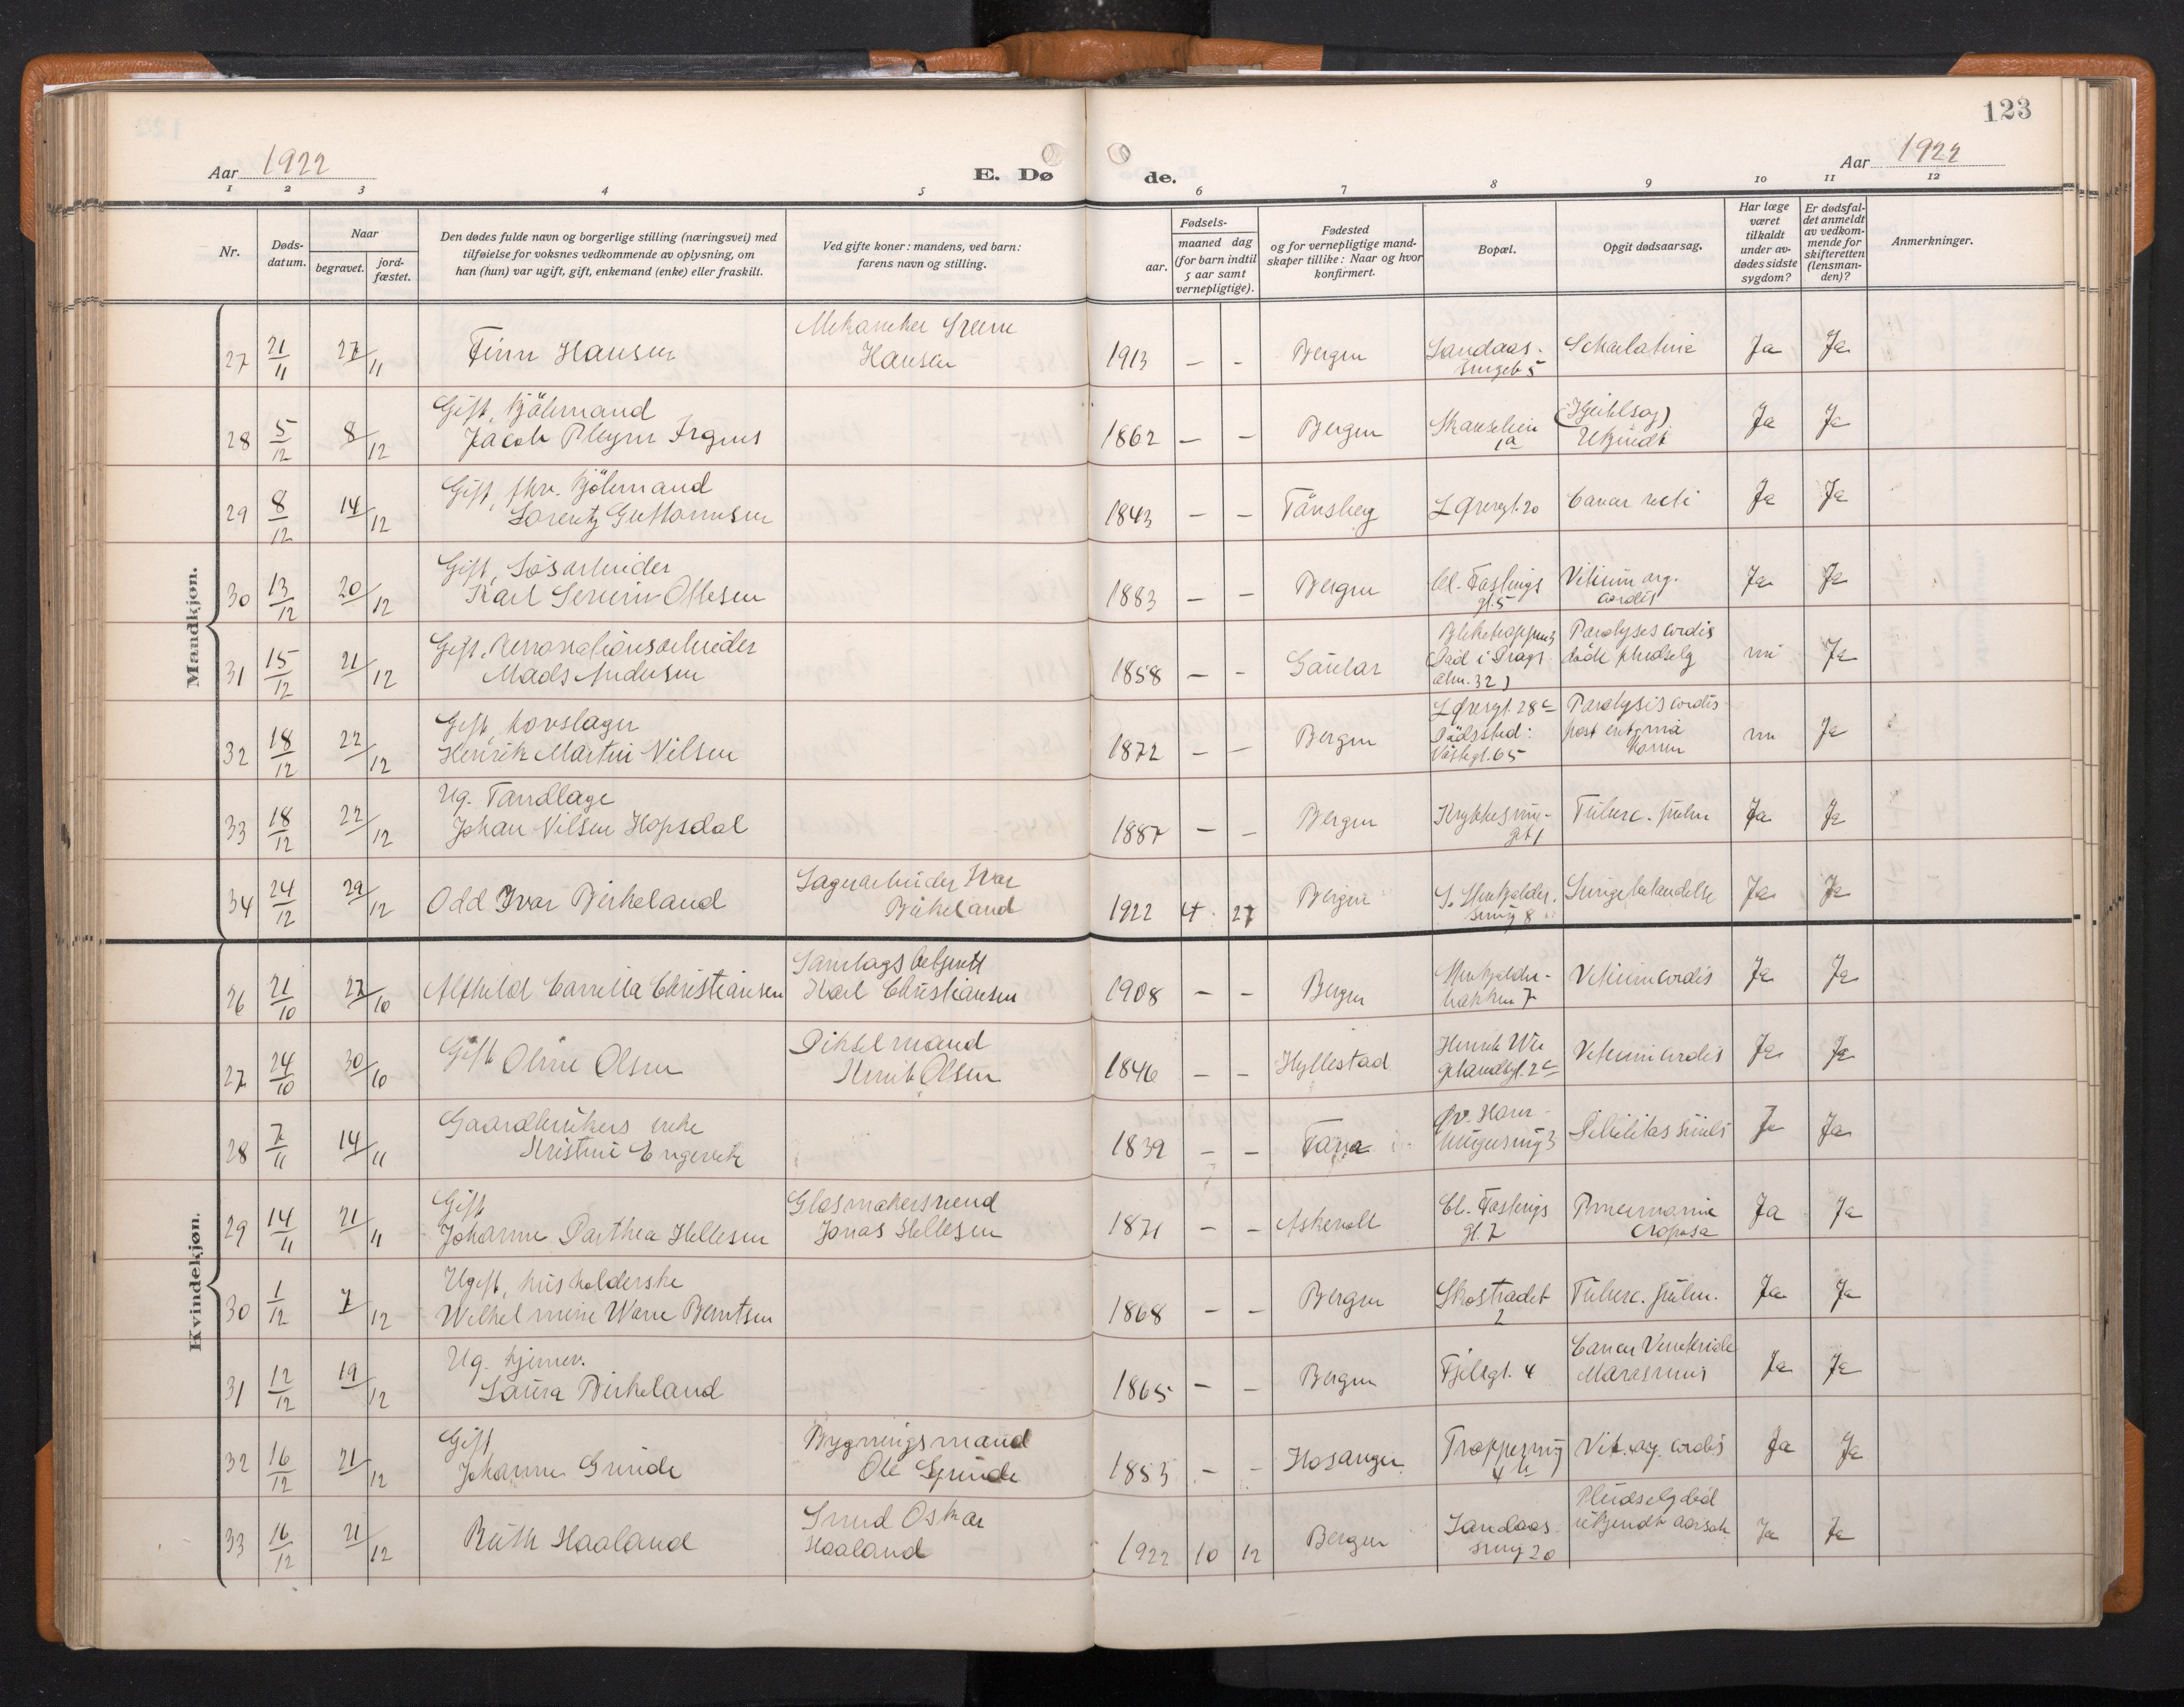 123
Aar 1922
E. Dø
de.
Aar 1922
1 2 3 4 5 6 7 8 9 10 11 12
Nr.
Døds-
datum.
Naar
begravet.
jord-
fæstet.
Den dødes fulde navn og borgerlige stilling (næringsvei) med
tilføielse for voksnes vedkommende av oplysning, om
han (hun) var ugift, gift, enkemand (enke) eller fraskilt.
Ved gifte koner: mandens, ved barn:
farens navn og stilling.
Fødsels-
aar.
maaned dag
(for barn indtil
5 aar samt
vernepligtige).
Fødested
og for vernepligtige mand-
skaper tillike: Naar og hvor
konfirmert.
Bopæl.
Opgit dødsaarsag.
Har læge
været
tilkaldt
under av-
dødes sidste
sygdom?
Er dødsfal-
det anmeldt
av vedkom-
mende for
skifteretten
(lensman-
den)?
Anmerkninger.
Mandkjøn.
27 21/11 27/11 Finn Hansen
Hansen
1913 - - Bergen Landaas-
smuget 5
Scharlatina Ja Ja
28 5/12 8/12 Gift, Kjølemand
Jacob Pleym Irgens
1862 - - Bergen Skanselien
1a
Ukjendt Ja Ja
29 8/12 14/12 Gift, fhv. Kjølemand
Lorentz
1843 - - Tønsberg L Øvregt. 20 Cancer recti Ja Ja
30 13/12 20/12 Gift, Løsarbeider
Karl Severin Ottesen
1883 - - Bergen Cl. Fastings
gt. 5
Vitium org.
cordis
Ja Ja
31 15/12 21/12 Gift, Renovationsarbeider
Mads Andersen
1858 - - Gaular
(Død i Dragr.
alm. 32)
Paralysis cordis
døde pludselig
nei Ja
32 18/12 22/12 Gift, hovslager
Henrik Martin Nilsen
1872 - - Bergen L Øvregt. 28c
Dødssted:
65
Paralysis cordis
post
Ja
33 18/12 22/12 Ug. Tandlæge
Johan Nilsen Hopsdal
1887 - - Bergen
gt 1
Tuberc. pulm Ja Ja
34 24/12 29/12 Odd Ivar Birkeland Lagerarbeider Ivar
Birkeland
1922 4 27 Bergen
smug 8
Lungebetændelse Ja Ja
Kvindekjøn.
26 21/10 27/10 Alfhild Camilla Christiansen Samlagsbetjent
Karl Christiansen
1908 - - Bergen
bakken 7
Vitium cordis Ja Ja
27 24/10 30/10 Gift Oline Olsen
Henrik Olsen
1846 - - Hyllestad Henrik Wer
gelandsgt. 2c
Vitium cordis Ja Ja
28 7/11 14/11 Gaardbrukers enke
Kristine Engevik
1839 - - Øv. Ham-
3
Debilitas senilis Ja Ja
29 14/11 21/11 Gift
Johanne Dorthea Hellesen
Glasmakersvend
Jonas Hellesen
1871 - - Askevold Cl. Fastings
gt. 7
Pneumonia
croposa
Ja Ja
30 1/12 7/12 Ugift, husholderske
Wilhelmine Berntsen
1868 - - Bergen Skostrædet
2
Tuberc. pulm. Ja Ja
31 12/12 19/12 Ug. hjemmev.
Laura Birkeland
1865 - - Bergen Fjeldgt. 4 Cancer Ventriculi
Marasmus
Ja Ja
32 16/12 21/12 Gift
Johanne Grinde
Bygningsmand
Ole Grinde
1853 - - Hosanger Trappesmug
4 b
Vit. org. cordis Ja Ja
33 16/12 21/12 Ruth Haaland Smed Oskar
Haaland
1922 10 12 Bergen Landaas-
smug 20
Pludselig død
ukjendt aarsak
Ja Ja